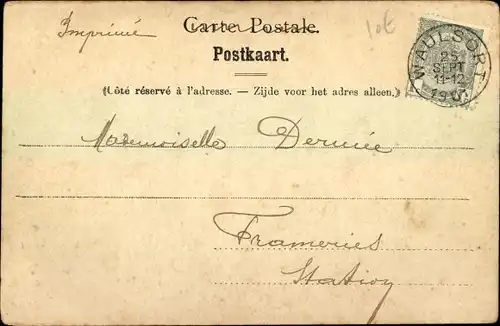 Imprimé
Carte Postale.
Postkaart.
(Côté réservé à l'adresse. — Zijde voor het adres alleen.)
WAULSORT
25
SEPT
11-12
1901
Mademoiselle Dermée
Frameries
Station